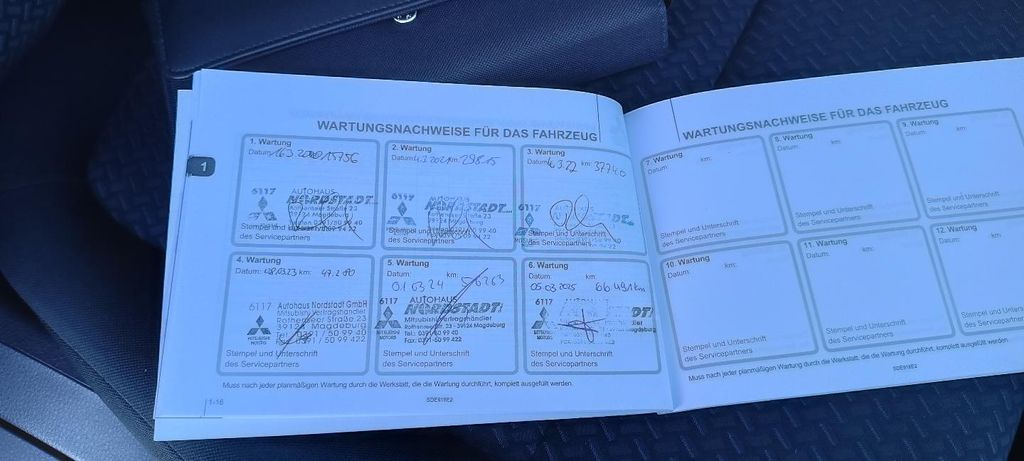 WARTUNGSNACHWEISE FÜR DAS FAHRZEUG
1
1. Wartung
Datum: 16.3.2020 15756
6117 AUTOHAUS
NORDSTADT
Rothenseer Straße 23
39124 Magdeburg
Stempel und
des Servicepartners
2. Wartung
Datum: 4.3.2021 km: 29815
6117
NORDSTADT
Rothenseer Straße 23
39124 Magdeburg
Stempel und
des Servicepartners
3. Wartung
Datum: 16.3.22 km: 37740
6117
Stempel und Unterschrift
des Servicepartners
4. Wartung
Datum: 08.03.23 km: 47.280
6117 Autohaus Nordstadt GmbH
Mitsubishi Vertragshändler
Rothenseer Straße 23
39124 Magdeburg
Tel.: 0391 / 50 99 40
0391 / 50 99 422
MITSUBISHI
MOTORS
Stempel und Unterschrift
des Servicepartners
5. Wartung
Datum: km:
01 03 24 56263
6117 AUTOHAUS
NORDSTADT
Mitsubishi-Vertragshändler
Rothenseer Str. 23 · 39124 Magdeburg
Tel.: 0391/50 99 40
Fax: 0391/50 99 422
MITSUBISHI
MOTORS
Stempel und Unterschrift
des Servicepartners
6. Wartung
Datum: km:
05.03.2025 66.491 km
6117
DT
MITSUBISHI
MOTORS
Stempel und Unterschrift
des Servicepartners
Muss nach jeder planmäßigen Wartung durch die Werkstatt, die die Wartung durchführt, komplett ausgefüllt werden.
1-16
SDE918E2
WARTUNGSNACHWEISE FÜR DAS FAHRZEUG
7. Wartung
Datum: km:
Stempel und Unterschrift
des Servicepartners
8. Wartung
Datum: km:
Stempel und Unterschrift
des Servicepartners
9. Wartung
Datum:
Stempel und Unterschrift
des Servicepartners
10. Wartung
Datum: km:
Stempel und Unterschrift
des Servicepartners
11. Wartung
Datum: km:
Stempel und Unterschrift
des Servicepartners
12. Wartung
Datum:
Stempel und Unterschrift
des Servicepartners
Muss nach jeder planmäßigen Wartung durch die Werkstatt, die die Wartung durchführt, komplett ausgefüllt werden.
SDE918E2